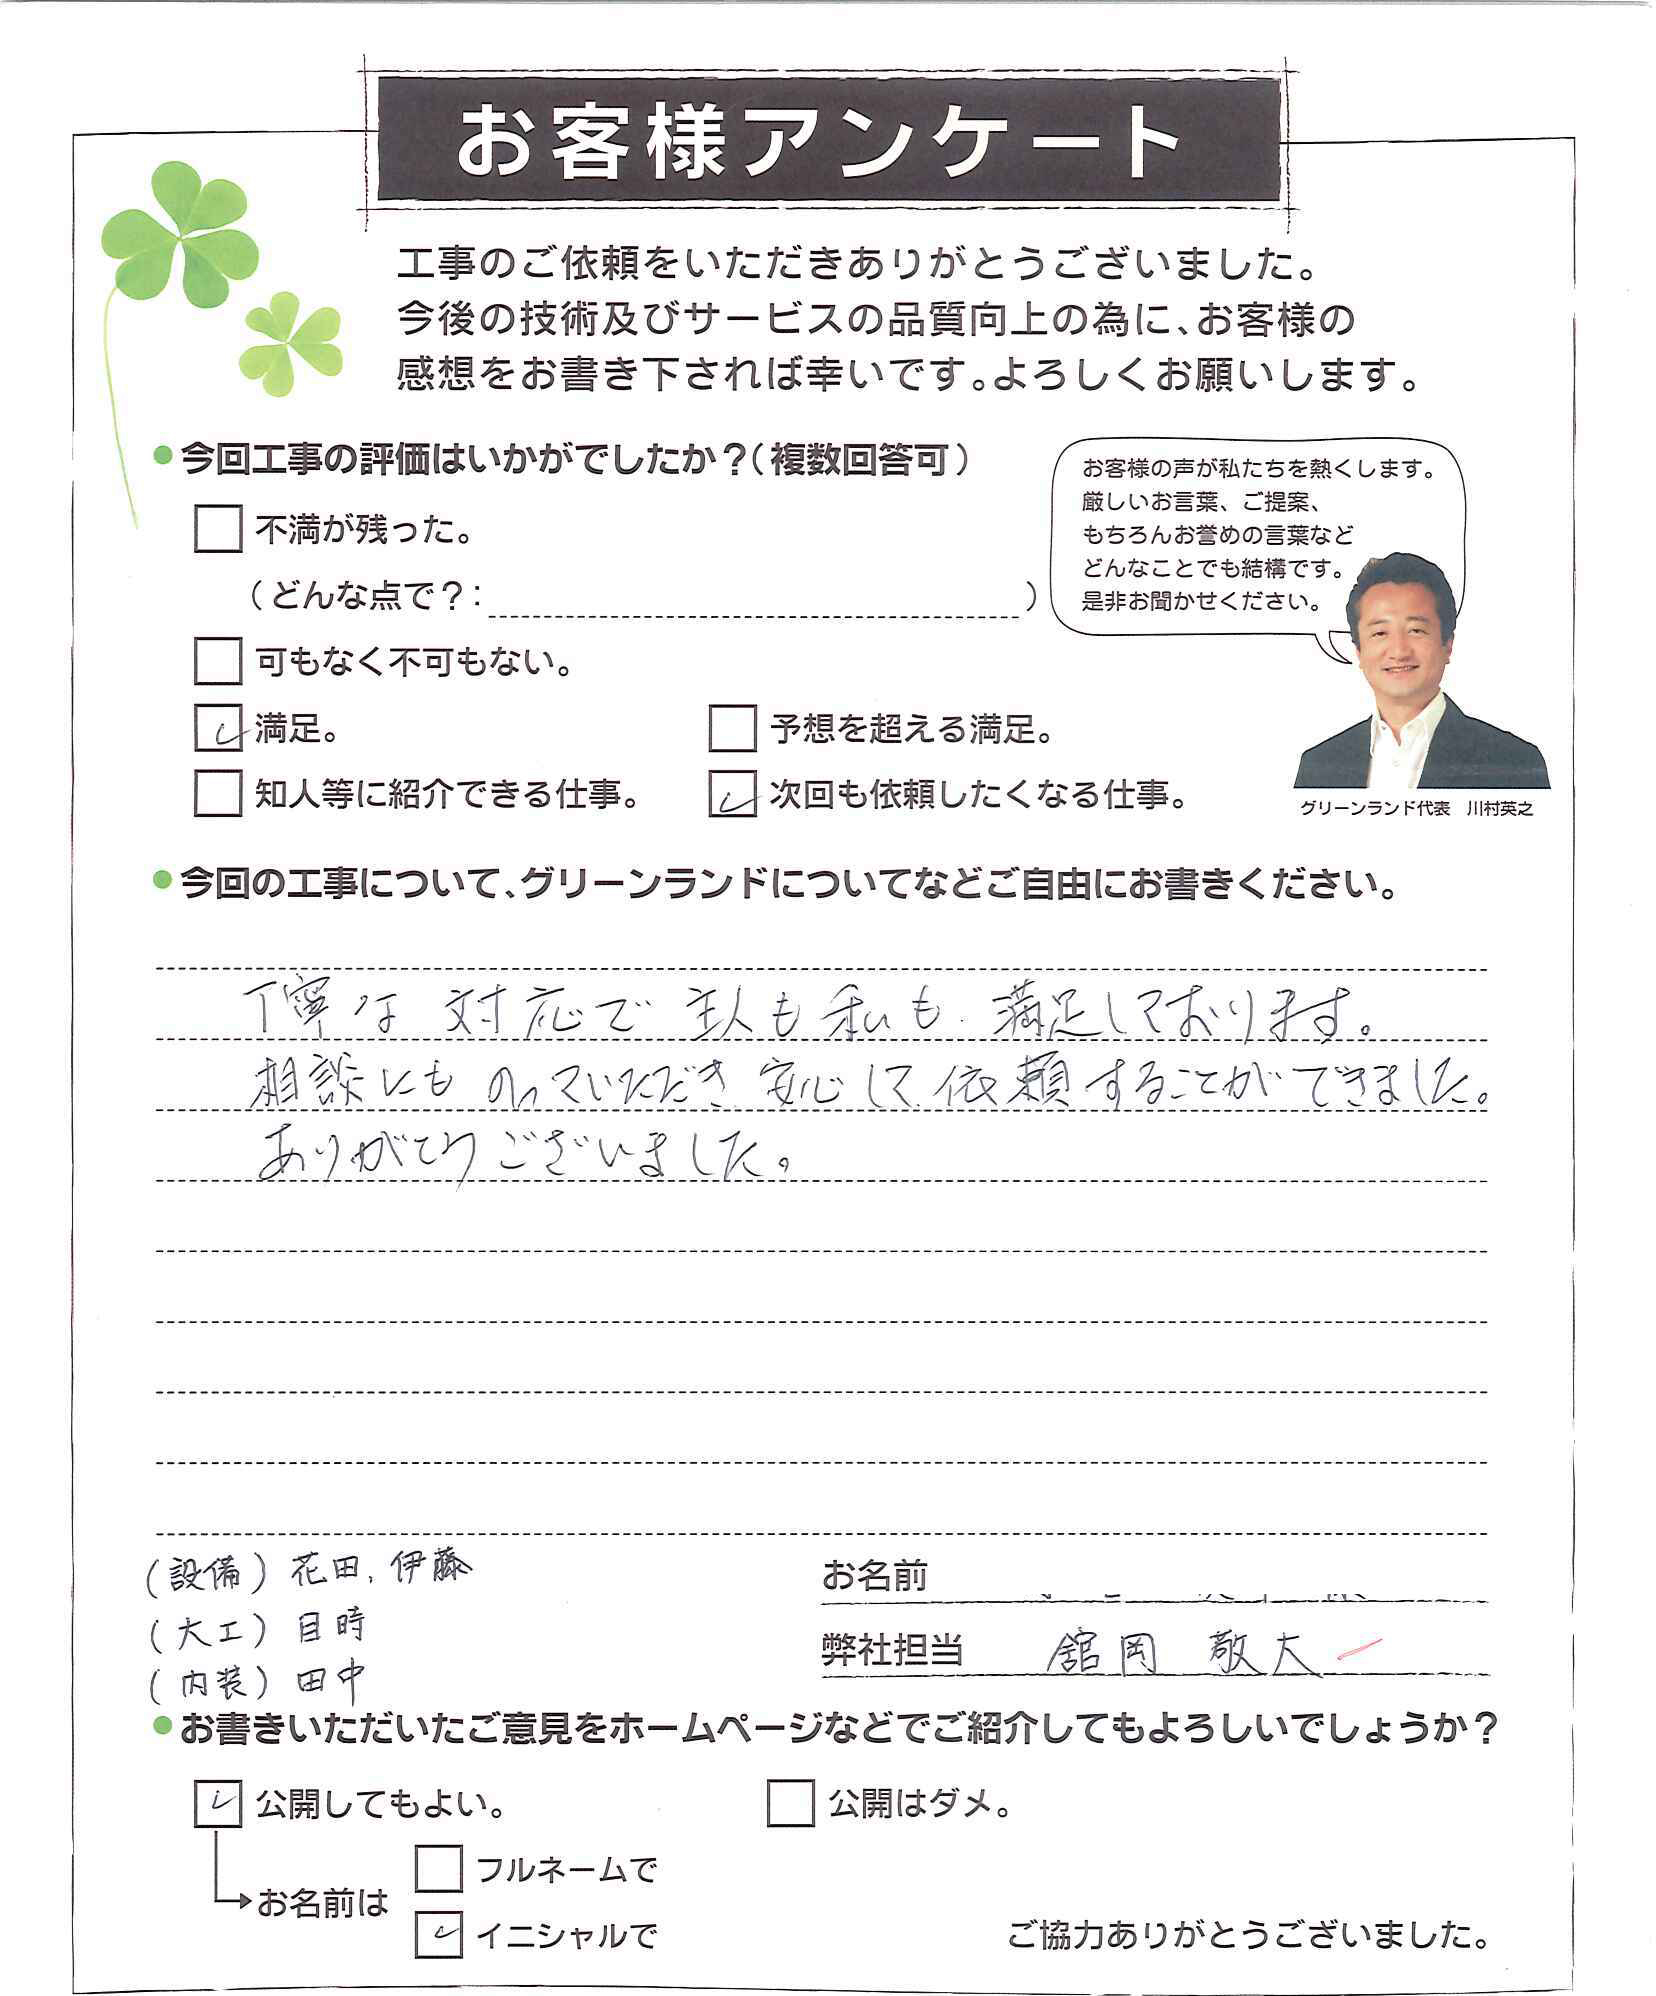 お客様アンケート
工事のご依頼をいただきありがとうございました。
今後の技術及びサービスの品質向上の為に、お客様の
感想をお書き下されば幸いです。よろしくお願いします。
●今回工事の評価はいかがでしたか？（複数回答可）
不満が残った。
（どんな点で？：　　）
可もなく不可もない。
満足。
予想を超える満足。
知人等に紹介できる仕事。
次回も依頼したくなる仕事。
お客様の声が私たちを熱くします。
厳しいお言葉、ご提案、
もちろんお誉めの言葉など
どんなことでも結構です。
是非お聞かせください。
グリーンランド代表　川村英之
●今回の工事について、グリーンランドについてなどご自由にお書きください。
丁寧な対応で主人も私も満足しております。
相談にものっていただき安心して依頼することができました。
ありがとうございました。
(設備) 花田, 伊藤
(大工) 目時
(内装) 田中
お名前
弊社担当　舘岡　敬大
●お書きいただいたご意見をホームページなどでご紹介してもよろしいでしょうか？
公開してもよい。
公開はダメ。
お名前は
フルネームで
イニシャルで
ご協力ありがとうございました。